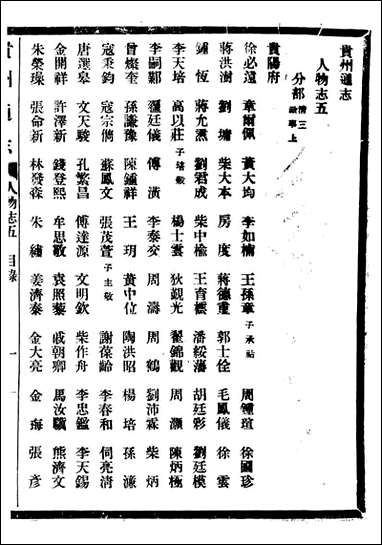 貴州通志
人物志五
分部 清三 政事上
貴陽府
徐必遠 章爾佩 黃大均 李如楠 王孫章 子承祜 周鍾瑄 徐國珍
蔣洪澍 劉墉 柴大本 房度 蔣德重 郭士佺 毛鳳儀 徐雲
鍾恆 蔣允焄 劉君成 柴中楡 王育 潘綏藩 胡廷彩 劉廷模
李天培 高以莊 子培穀 楊士雲 狄觀光 翟錦觀 周灝 陳炳極
李嗣鄴 翟廷儀 傅潢 李泰交 周濤 周鶴 劉沛霖 柴炳
曾燦奎 孫謙豫 陳鍾祥 王玥 黃中位 陶洪昭 楊培 孫濂
寇秉鈞 寇宗儁 蘇鳳文 張茂萱 子圭敬 謝葆齡 李春和 伺亮清
唐選皋 文天駿 孔繁昌 傅達源 文明欽 柴作舟 李忠鑑 李天錫
金開祥 許澤新 錢登熙 牟思敬 袁照藜 戚朝卿 馬汝驥 熊濟文
朱榮璪 張命新 林發森 朱繡 姜濟泰 金大亮 金海 張彥
貴州通志 人物志五 目錄 一